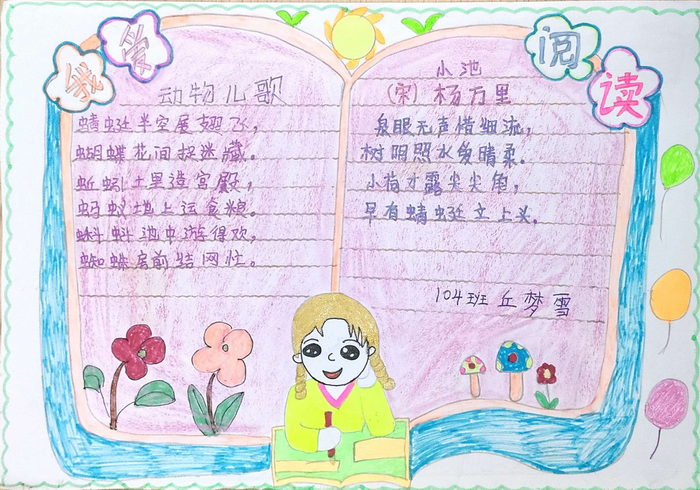 我爱阅读
动物儿歌
蜻蜓半空展翅飞，
蝴蝶花间捉迷藏。
蚯蚓土里造宫殿，
蚂蚁地上运食粮。
蝌蚪池中游得欢，
蜘蛛房前结网忙。
小池
（宋）杨万里
泉眼无声惜细流，
树阴照水爱晴柔。
小荷才露尖尖角，
早有蜻蜓立上头。
104班 丘梦雪